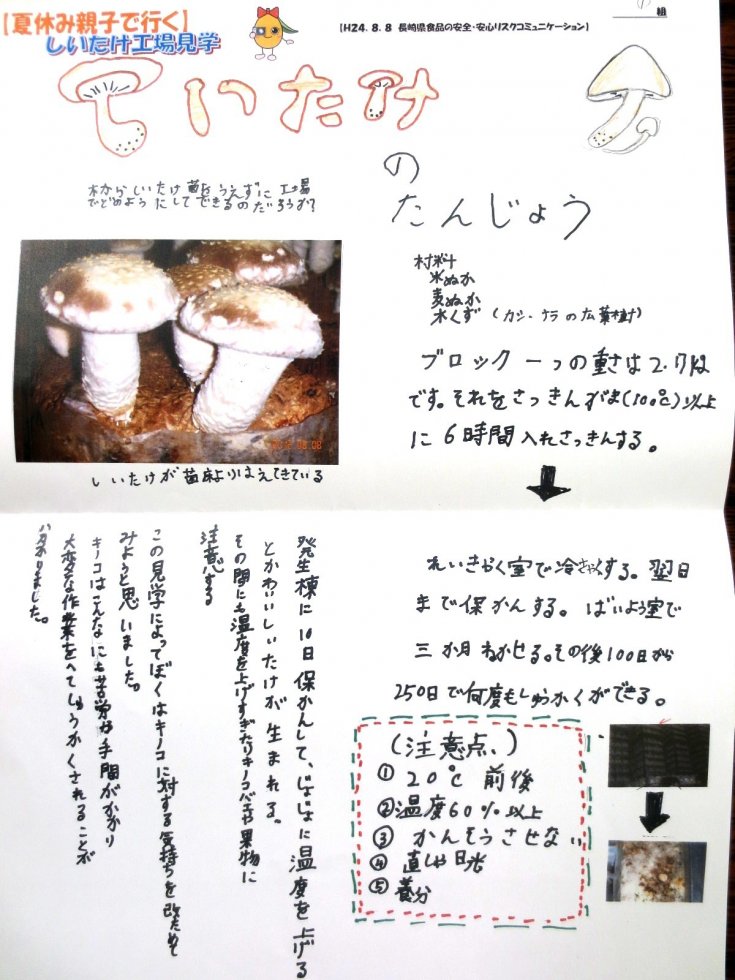 【夏休み親子で行く】
しいたけ工場見学
【H24.8.8 長崎県食品の安全・安心リスクコミュニケーション】
組
しいたけ
の
たんじょう
木からしいたけ菌をうえずに工場
でどのようにしてできるのだろうか?
材料
米ぬか
麦ぬか
木くず(カシ・ナラの広葉樹)
ブロック一つの重さは2.7kg
です。それをさっきんがま(100℃)以上
に6時間入れさっきんする。
しいたけが菌床よりはえてきている
れいきゃく室で冷きゃくする。翌日
まで保かんする。ばいよう室で
三か月ねかせる。その後100日から
250日で何度もしゅうかくができる。
(注意点、)
① 20℃前後
② 温度60%以上
③ かんそうさせない
④ 直しゃ日光
⑤ 養分
発生棟に10日保かんして、じょじょに温度を上げる
とかわいいしいたけが生まれる。
その間にも温度を上げすぎたりキノコバエや果物に
注意する
この見学によってぼくはキノコに対する気持ちを改ためて
みようと思いました。
キノコはこんなにも苦労や手間がかかり
大変な作業をへてしゅうかくされることが
分かりました。